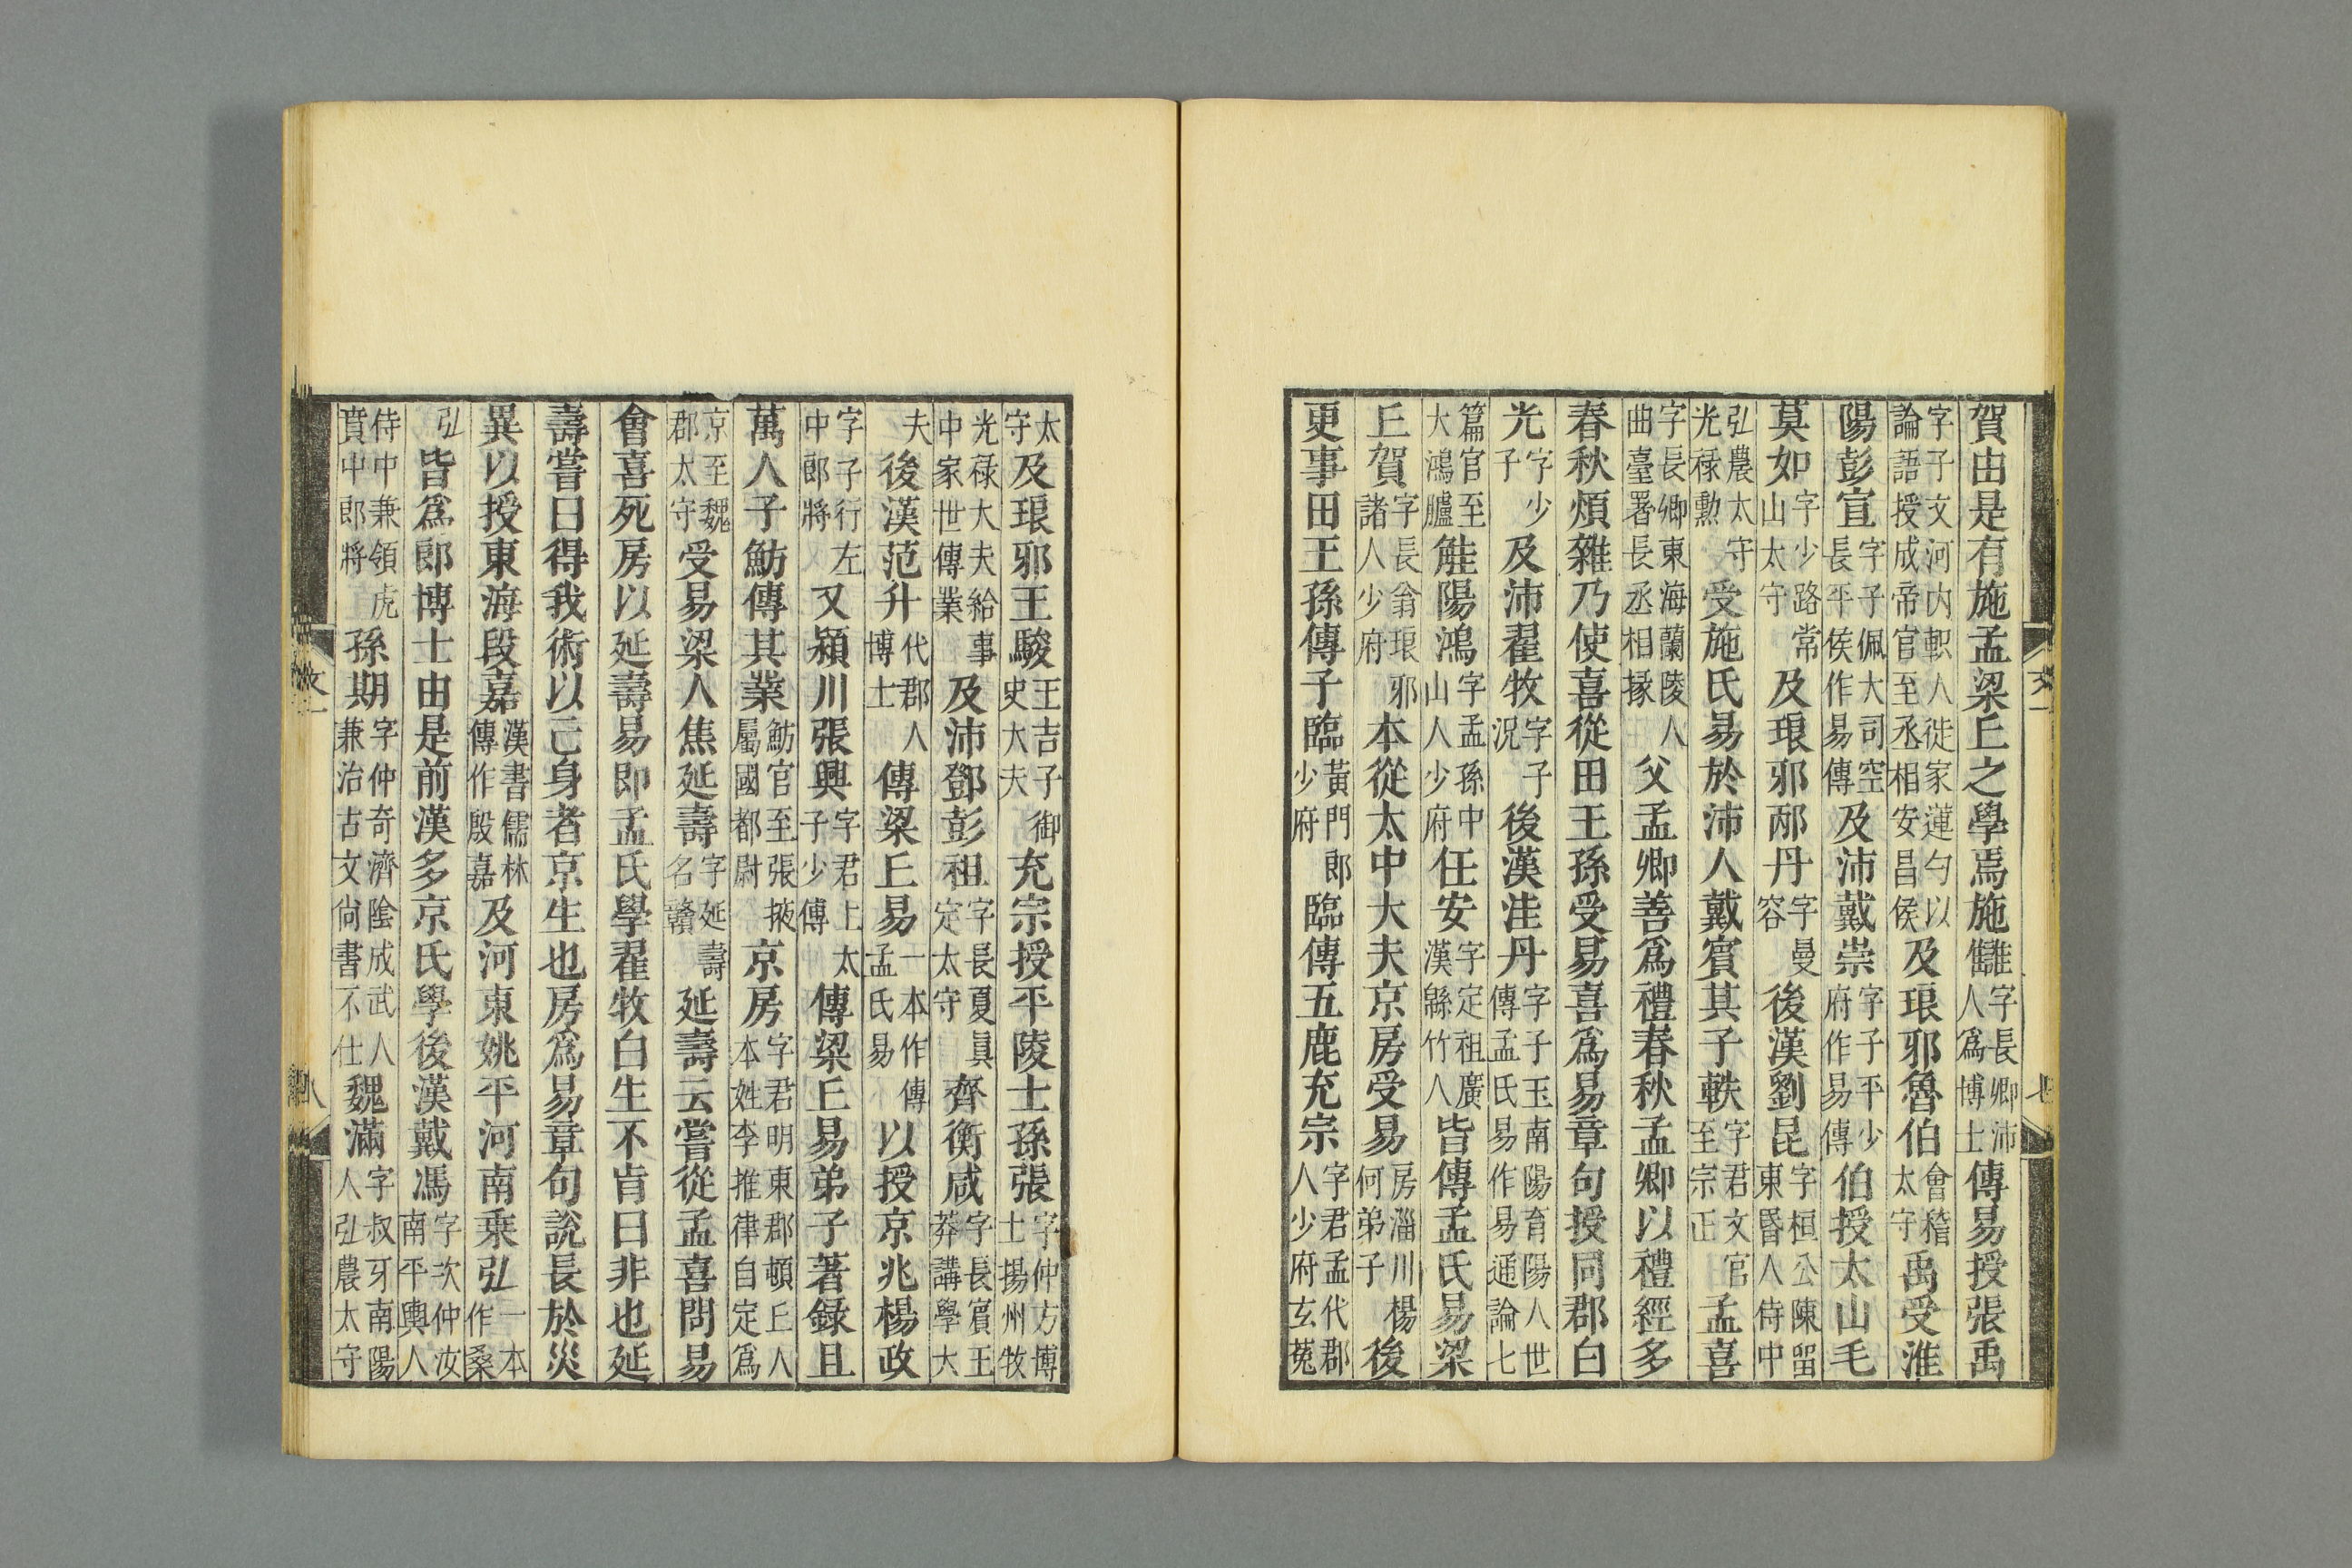 賀由是有施孟梁丘之學焉施讎字長卿沛人爲博士傳易授張禹
字子文河内軹人徙家蓮勺以論語授成帝官至丞相安昌侯及琅邪魯伯會稽太守禹受淮
陽彭宣字子佩大司空長平侯作易傳及沛戴崇字子平少府作易傳伯授太山毛
莫如字少路常山太守及琅邪邴丹字曼容後漢劉昆字桓公陳留東昬人侍中
弘農太守光祿勳受施氏易於沛人戴賓其子軼字君文官至宗正孟喜
字長卿東海蘭陵人曲臺署長丞相掾父孟卿善爲禮春秋孟卿以禮經多
春秋煩雜乃使喜從田王孫受易喜爲易章句授同郡白
光字少子及沛翟牧字子況後漢洼丹字子玉南陽育陽人世傳孟氏易作易通論七
篇官至大鴻臚觟陽鴻字孟孫中山人少府任安字定祖廣漢緜竹人皆傳孟氏易梁
丘賀字長翁琅邪諸人少府本從太中大夫京房受易房淄川楊何弟子後
更事田王孫傳子臨黃門郎少府臨傳五鹿充宗字君孟代郡人少府玄菟
太守及琅邪王駿王吉子御史大夫充宗授平陵士孫張字仲方博士揚州牧
光祿大夫給事中家世傳業及沛鄧彭祖字長夏真定太守齊衡咸字長賓王莽講學大
夫後漢范升代郡人博士傳梁丘易一本作傳孟氏易以授京兆楊政
字子行左中郎將又潁川張興字君上太子少傳傳梁丘易弟子著錄且
萬人子魴傳其業魴官至張掖屬國都尉京房字君明東郡頓丘人本姓李推律自定爲
京至魏郡太守受易梁人焦延壽字延壽名贛延壽云嘗從孟喜問易
會喜死房以延壽易即孟氏學翟牧白生不肯曰非也延
壽嘗曰得我術以亡身者京生也房爲易章句說長於災
異以授東海段嘉漢書儒林傳作殷嘉及河東姚平河南乘弘一本作桑
弘皆爲郎博士由是前漢多京氏學後漢戴馮字次仲汝南平輿人
侍中兼領虎賁中郎將孫期字仲奇濟陰成武人兼治古文尚書不仕魏滿字叔牙南陽人弘農太守